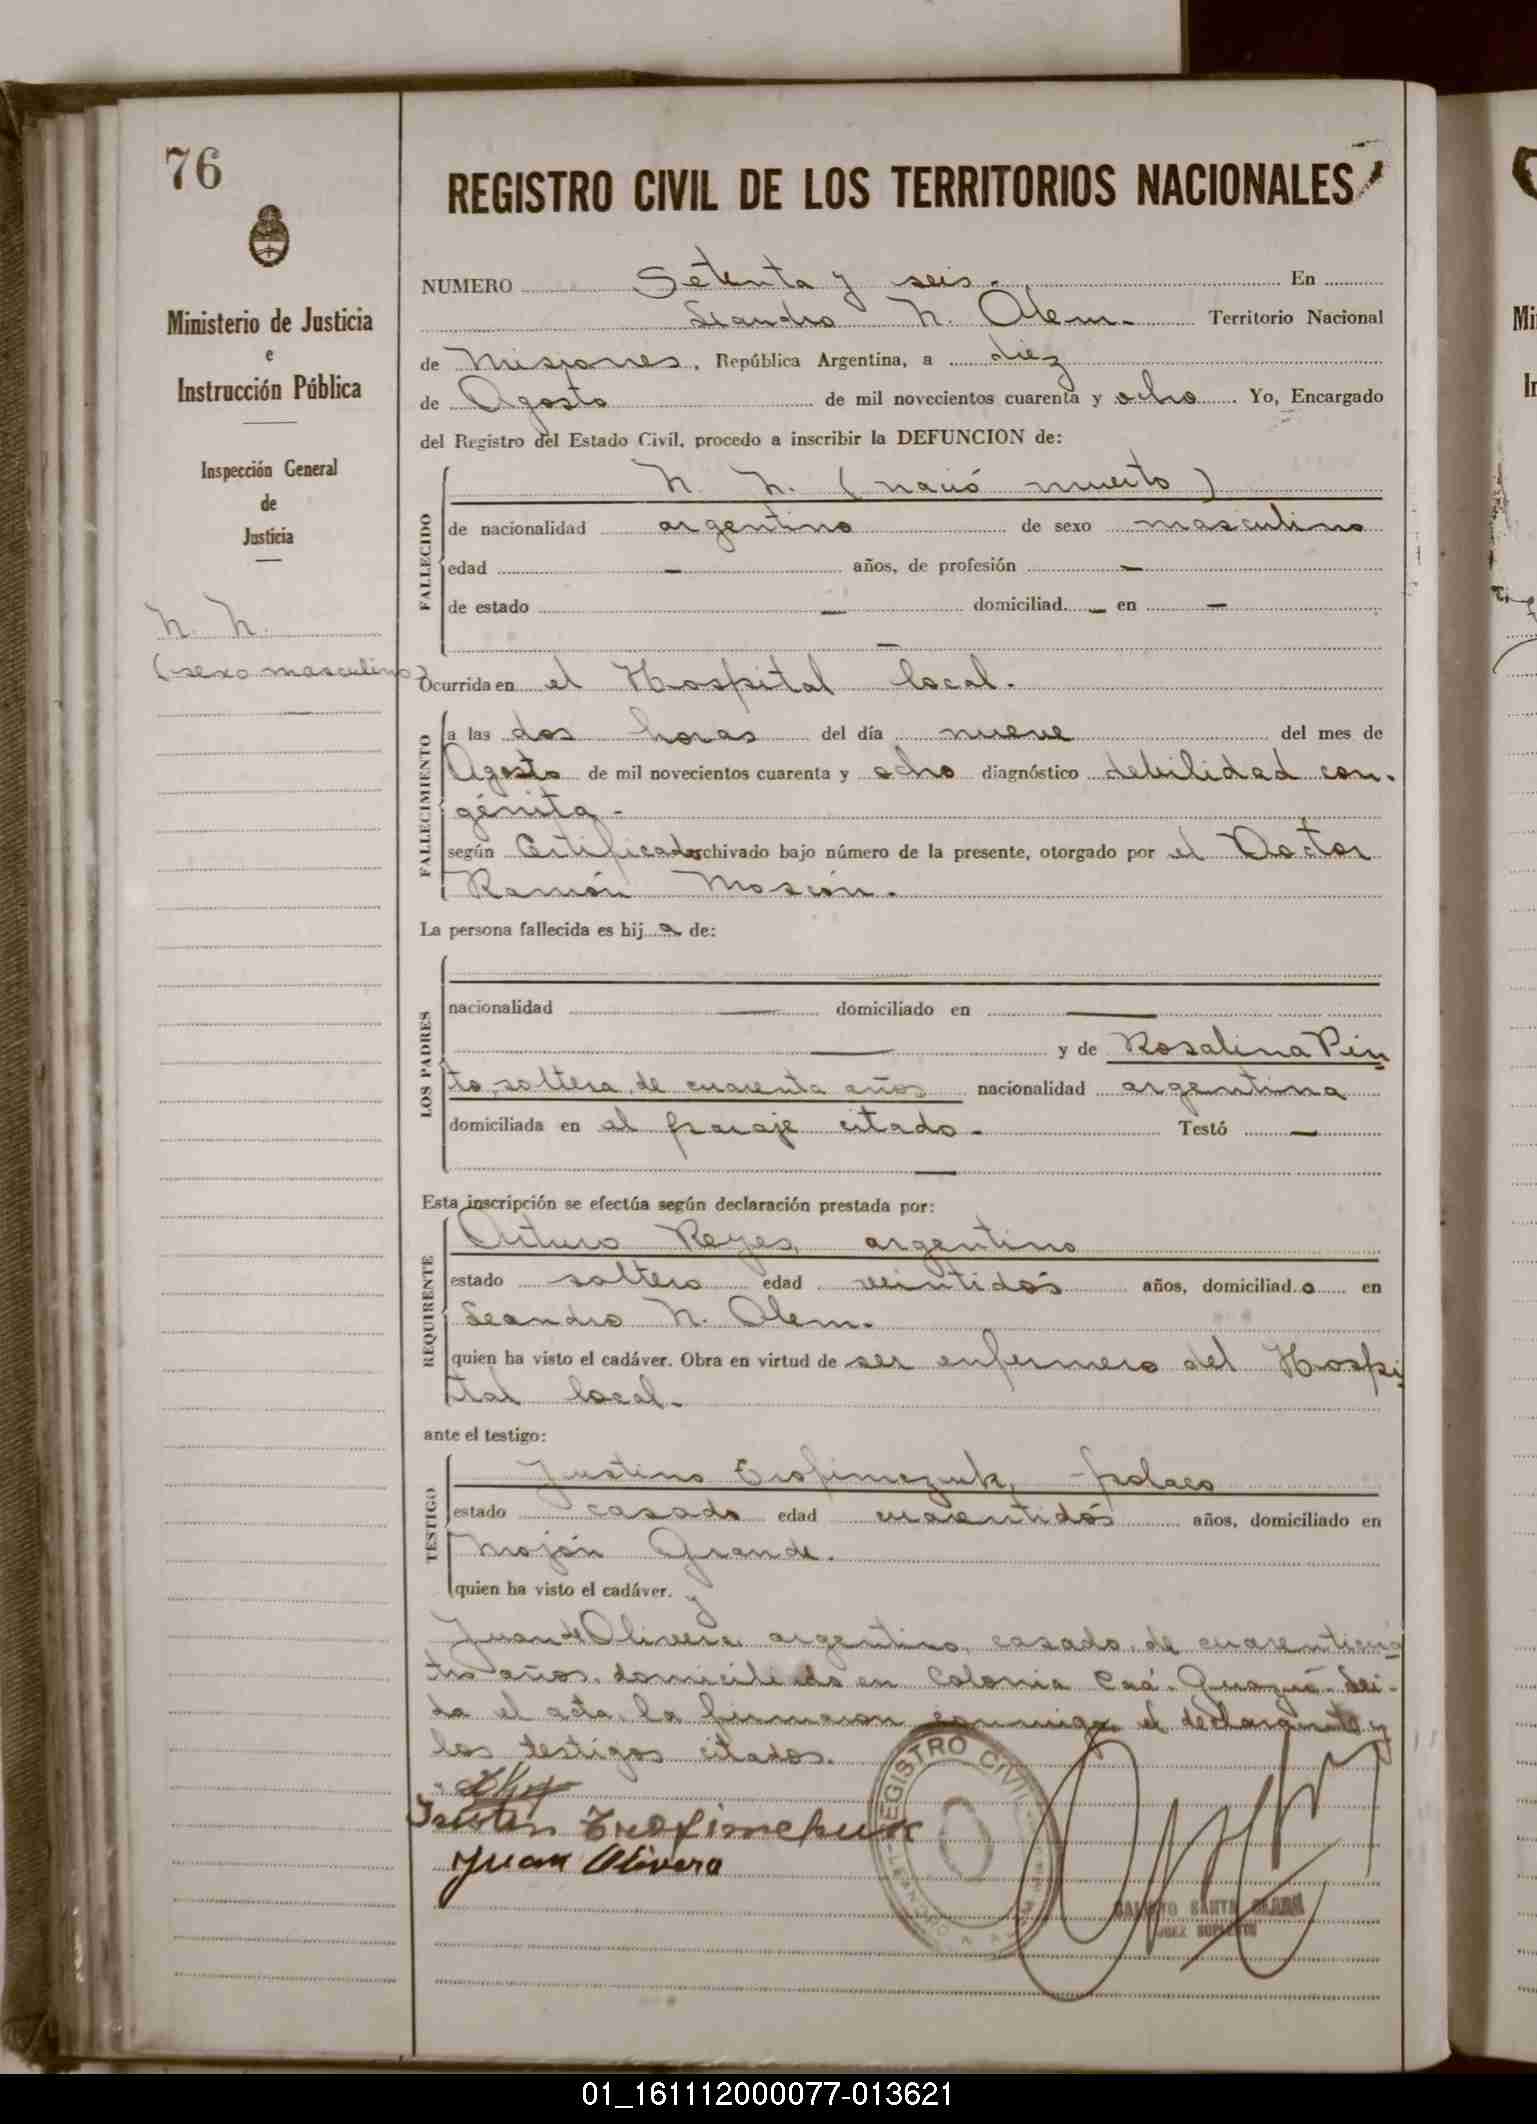 76
REGISTRO CIVIL DE LOS TERRITORIOS NACIONALES
Ministerio de Justicia
e
Instrucción Pública
Inspección General
de
Justicia
N. N.
(sexo masculino)
NUMERO Setenta y seis. En
Leandro N. Alem. Territorio Nacional
de Misiones, República Argentina, a diez
de Agosto de mil novecientos cuarenta y ocho. Yo, Encargado
del Registro del Estado Civil, procedo a inscribir la DEFUNCION de:
FALLECIDO
N. N. (nació muerto)
de nacionalidad argentino de sexo masculino
edad — años, de profesión —
de estado — domiciliad — en —
—
Ocurrida en el Hospital local.
FALLECIMIENTO
a las dos horas del día nueve del mes de
Agosto de mil novecientos cuarenta y ocho diagnóstico debilidad con-
génita-
según Certificado archivado bajo número de la presente, otorgado por el Doctor
Ramón
La persona fallecida es hijo de:
LOS PADRES
nacionalidad — domiciliado en —
— y de Rosalina Pin
to, soltera, de cuarenta años nacionalidad argentina
domiciliada en el paraje citado- Testó —
—
Esta inscripción se efectúa según declaración prestada por:
REQUIRENTE
Arturo Reyes, argentino
estado soltero edad veintidós años, domiciliado en
Leandro N. Alem.
quien ha visto el cadáver. Obra en virtud de ser enfermero del Hospi-
tal local.-
ante el testigo:
TESTIGO
Justino Trofimczuk, polaco
estado casado edad cuarentidós años, domiciliado en
Mojón Grande.
quien ha visto el cadáver. y
Juan de Olivera argentino, casado, de cuarenticua
tro años, domiciliado en Colonia Caá-Guazú- Leí-
da el acta, la firmaron conmigo el declarante y
los testigos citados.
Trofimchuk
Juan Olivera
REGISTRO CIVIL
LEANDRO N. ALEM
SANTA CLARA
JUEZ SUPLENTE
01_161112000077-013621